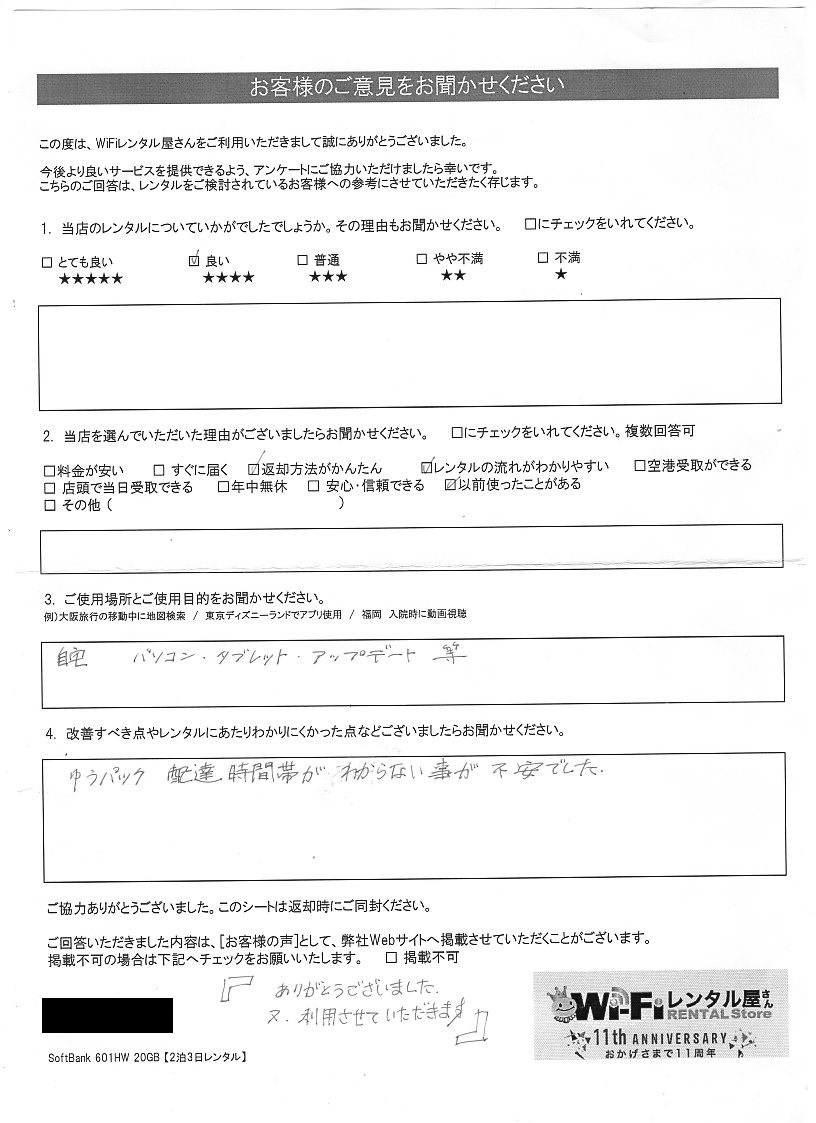 お客様のご意見をお聞かせください
この度は、WiFiレンタル屋さんをご利用いただきまして誠にありがとうございました。
今後より良いサービスを提供できるよう、アンケートにご協力いただけましたら幸いです。
こちらのご回答は、レンタルをご検討されているお客様への参考にさせていただきたく存じます。
1. 当店のレンタルについていかがでしたでしょうか。その理由もお聞かせください。 □にチェックをいれてください。
□ とても良い ☑ 良い □ 普通 □ やや不満 □ 不満
★★★★★ ★★★★ ★★★ ★★ ★
2. 当店を選んでいただいた理由がございましたらお聞かせください。 □にチェックをいれてください。複数回答可
□料金が安い □ すぐに届く ☑返却方法がかんたん ☑レンタルの流れがわかりやすい □空港受取ができる
□ 店頭で当日受取できる □年中無休 □ 安心・信頼できる ☑以前使ったことがある
□ その他 ( )
3. ご使用場所とご使用目的をお聞かせください。
例)大阪旅行の移動中に地図検索 / 東京ディズニーランドでアプリ使用 / 福岡 入院時に動画視聴
自宅 パソコン・タブレット・アップデート 等
4. 改善すべき点やレンタルにあたりわかりにくかった点などございましたらお聞かせください。
ゆうパック 配達時間帯がわからない事が不安でした.
ご協力ありがとうございました。このシートは返却時にご同封ください。
ご回答いただきました内容は、[お客様の声]として、弊社Webサイトへ掲載させていただくことがございます。
掲載不可の場合は下記へチェックをお願いいたします。 □ 掲載不可
『 ありがとうございました.
又、利用させていただきます 』
Wi-Fiレンタル屋さん
RENTAL Store
11th ANNIVERSARY
おかげさまで11周年
SoftBank 601HW 20GB【2泊3日レンタル】